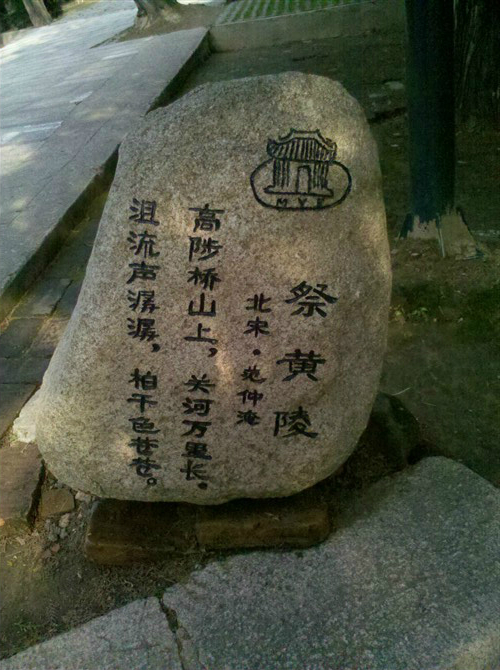 祭黄陵
北宋·范仲淹
高陟桥山上，关河万里长。
沮流声潺潺，柏干色苍苍。